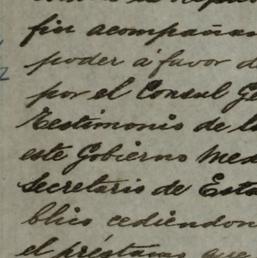 fin acompañan
poder á favor d
por el Consul Ge
Testimonio de l
este Gobierno Mex
Secretario de Esta
blico cediendon
el préstamo que